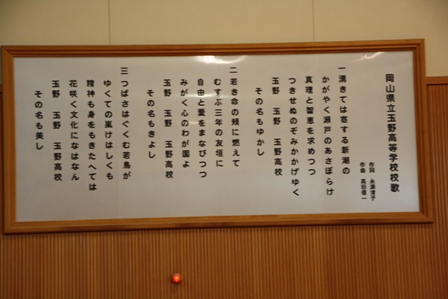 岡山県立玉野高等学校校歌
作詞 永瀬清子
作曲 高田信一
一 湧きては寄する新潮の
かがやく瀬戸のあさぼらけ
真理と智恵を求めつつ
つきせぬのぞみかかげゆく
玉野 玉野 玉野高校
その名もゆかし
二 若き命の頬に燃えて
むすぶ三年の友垣に
自由と愛をまなびつつ
みがく心のわが園よ
玉野 玉野 玉野高校
その名もきよし
三 つばさはぐくむ若鳥が
ゆくての嵐はげしくも
精神も身をもきたへては
花咲く文化になはなん
玉野 玉野 玉野高校
その名も美し